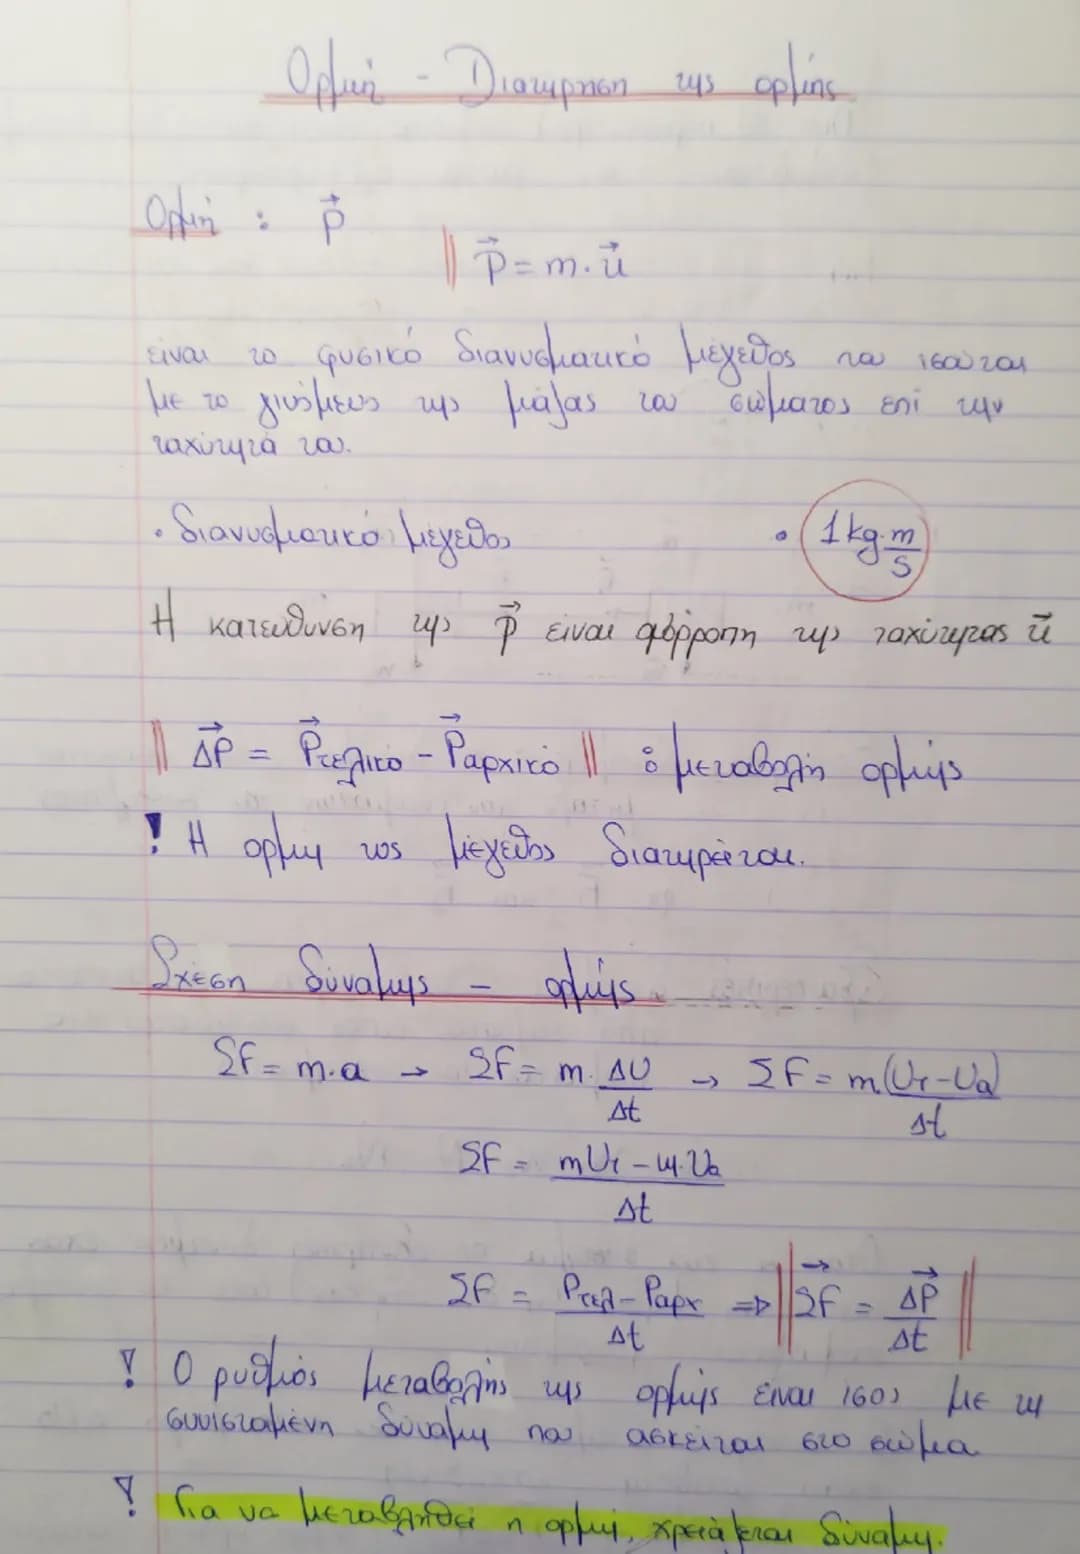 Ορμή - Διατήρηση της ορμής
Ορμή : p⃗
p⃗ = m · u⃗
είναι το φυσικό διανυσματικό μέγεθος που ισούται
με το γινόμενο της μάζας του σώματος επί την
ταχύτητά του.
· διανυσματικό μέγεθος · 1 kg·m/s
Η κατεύθυνση της p⃗ είναι ομόρροπη της ταχύτητας u⃗
ΔP⃗ = P⃗τελικό - P⃗αρχικό : μεταβολή ορμής
! Η ορμη ως μέγεθος διατηρείται.
Σχέση δύναμης - ορμής
ΣF = m·a → ΣF = m·ΔU/Δt → ΣF = m(Uτ-Uα)/Δt
ΣF = mUτ - m·Uα/Δt
ΣF = Pτελ - Pαρχ/Δt ⇒ ΣF⃗ = ΔP⃗/Δt
! Ο ρυθμός μεταβολής της ορμής είναι ισος με τη
συνισταμένη δύναμη που ασκείται στο σώμα
! Για να μεταβληθεί η ορμή, χρειάζεται δύναμη.